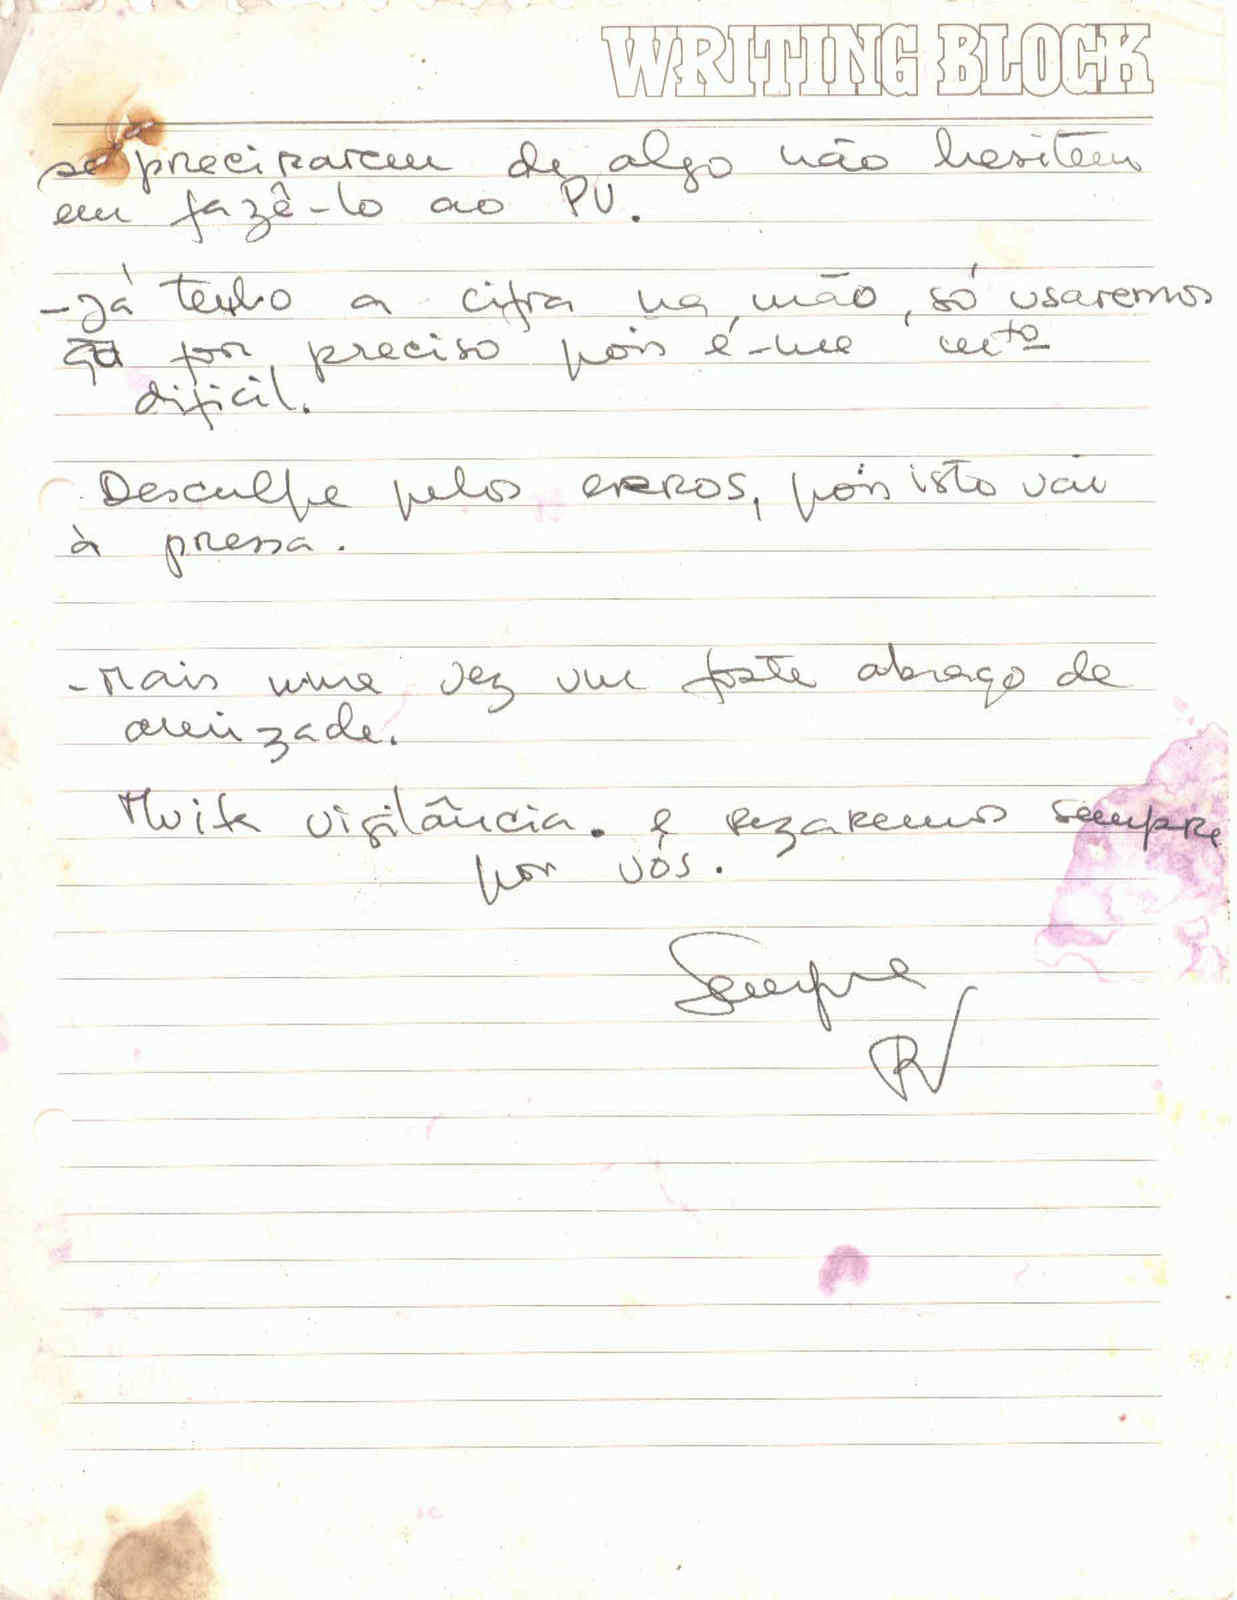 WRITING BLOCK
se precisarem de algo não hesitem
em fazê-lo ao PU.
- Já tenho a cifra na mão, só usaremos
se for preciso pois é-me mto
dificil.
Desculpe pelos erros, pois isto vai
à pressa.
- Mais uma vez um forte abraço de
amizade.
Muita vigilância. e rezaremos sempre
por vós.
Sempre
RV